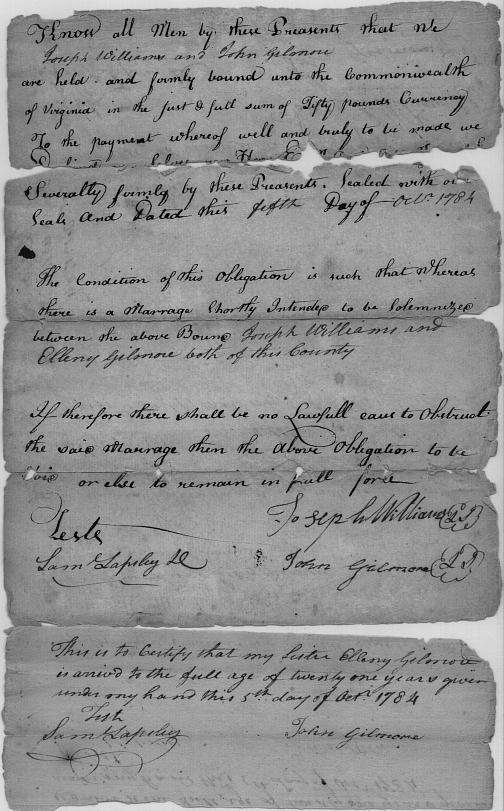 Know all Men by these Preasents that we
Joseph Williams and John Gilmore
are held and firmly bound unto the Commonwealth
of Virginia in the Just & full sum of Fifty pounds Currency
To the payment whereof well and truly to be made we
Severalty firmly by these Preasents. Sealed with our
Seals And Dated this fifth Day of Octr. 1784
The Condition of this Obligation is such that Whereas
there is a Marrage Shortly Intended to be Solemnized
between the above Bound Joseph Williams and
Elleny Gilmore both of this County
If therefore there shall be no Lawfull caus to Obstruct
the said Marrage then the Above Obligation to be
Void or else to remain in full force
Teste
Joseph Williams
Saml Lapsley
John Gilmore
This is to Certify that my Sister Elleny Gilmore
is arived to the full age of twenty one years given
under my hand this 5th day of Octr. 1784
Test
Saml Lapsley
John Gilmore